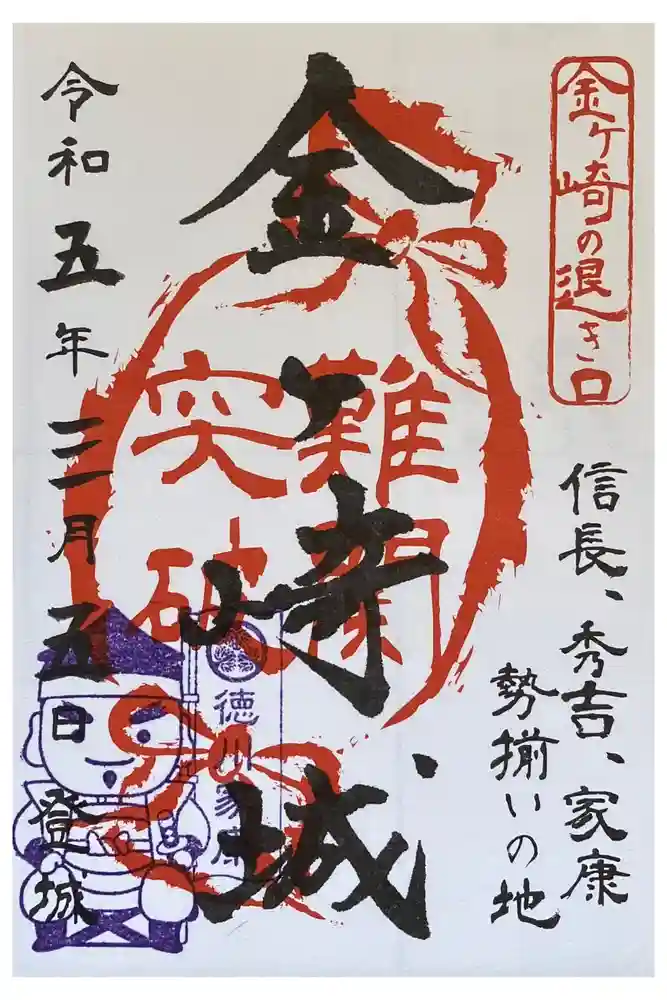 金ヶ崎の退き口
信長、秀吉、家康
勢揃いの地
金ヶ崎城
難関
突破
令和五年三月五日登城
徳川家康